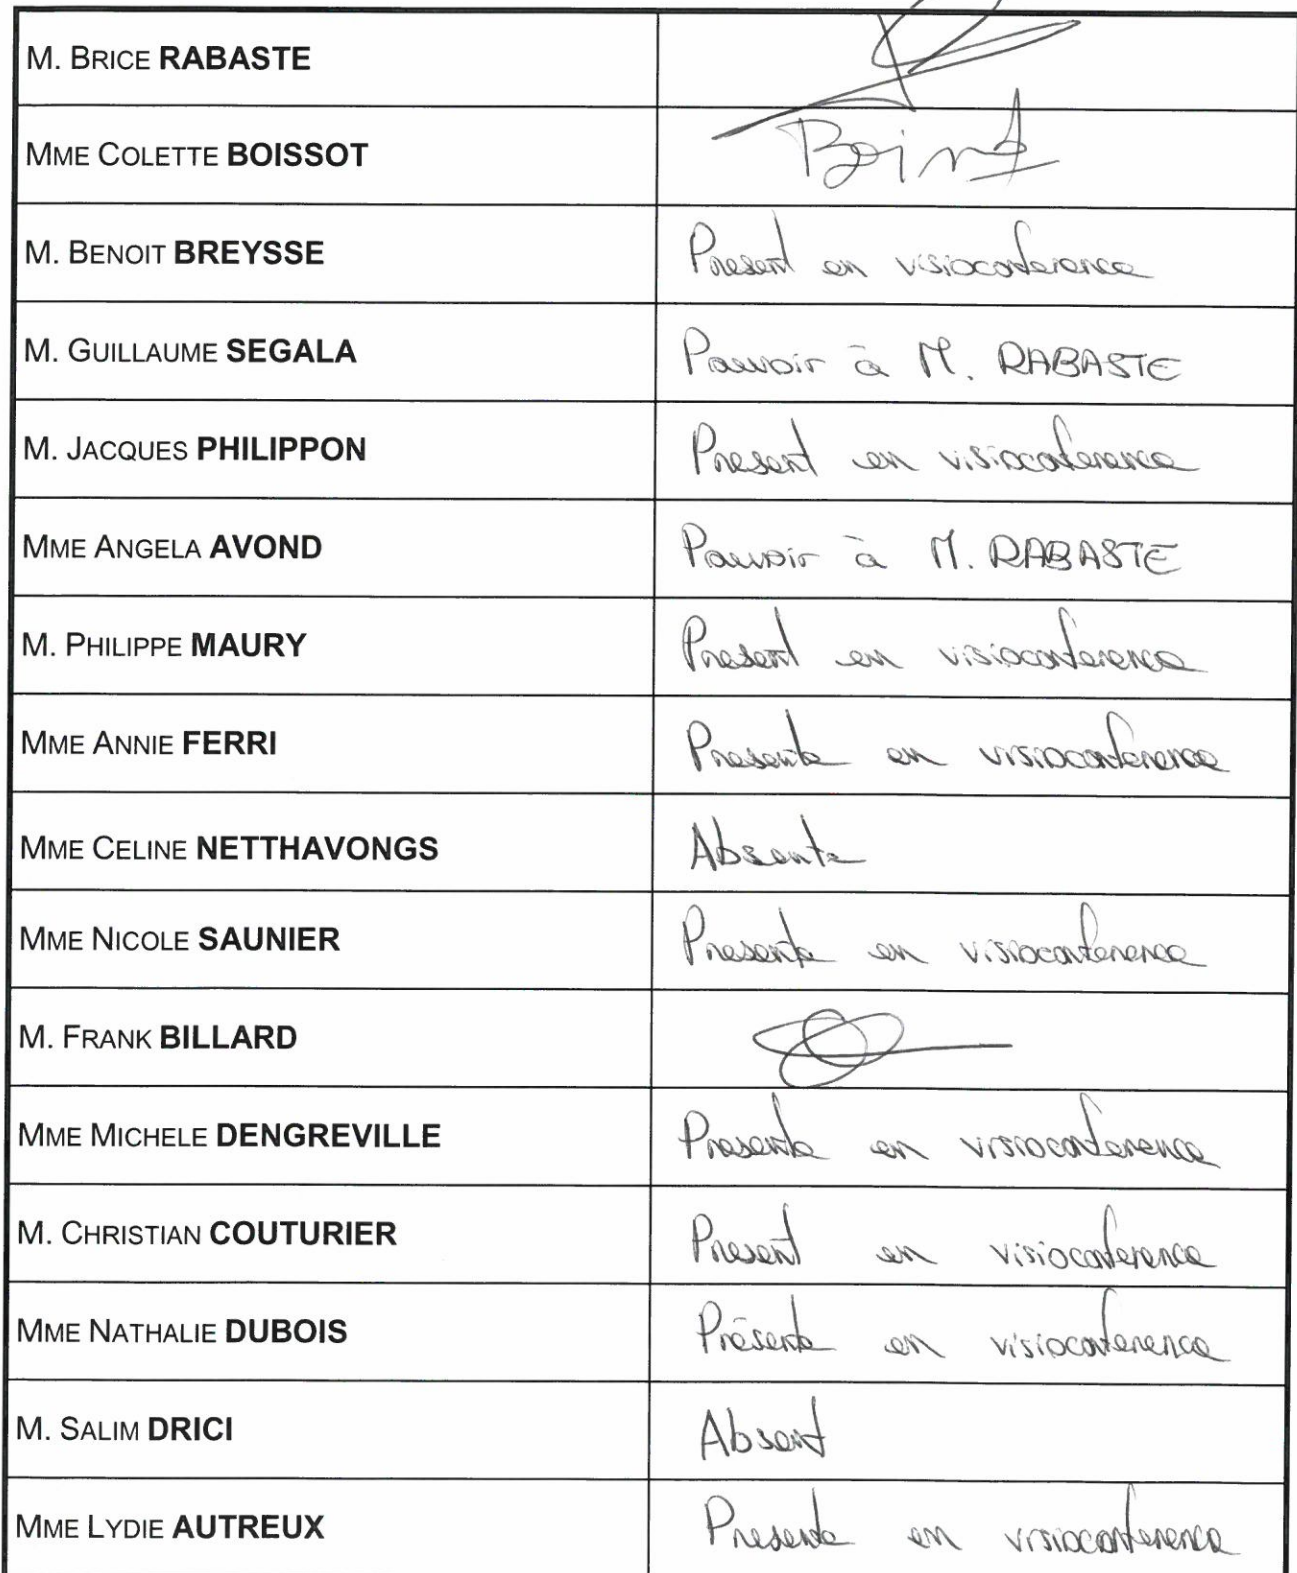 M. BRICE RABASTE
MME COLETTE BOISSOT
M. BENOIT BREYSSE Present en visioconference
M. GUILLAUME SEGALA Pouvoir à M. RABASTE
M. JACQUES PHILIPPON Present en visioconference
MME ANGELA AVOND Pouvoir à M. RABASTE
M. PHILIPPE MAURY Present en visioconference
MME ANNIE FERRI Presente en visioconference
MME CELINE NETTHAVONGS Absente
MME NICOLE SAUNIER Presente en visioconference
M. FRANK BILLARD
MME MICHELE DENGREVILLE Presente en visioconference
M. CHRISTIAN COUTURIER Present en visioconference
MME NATHALIE DUBOIS Présente en visioconference
M. SALIM DRICI Absent
MME LYDIE AUTREUX Presente en visioconference